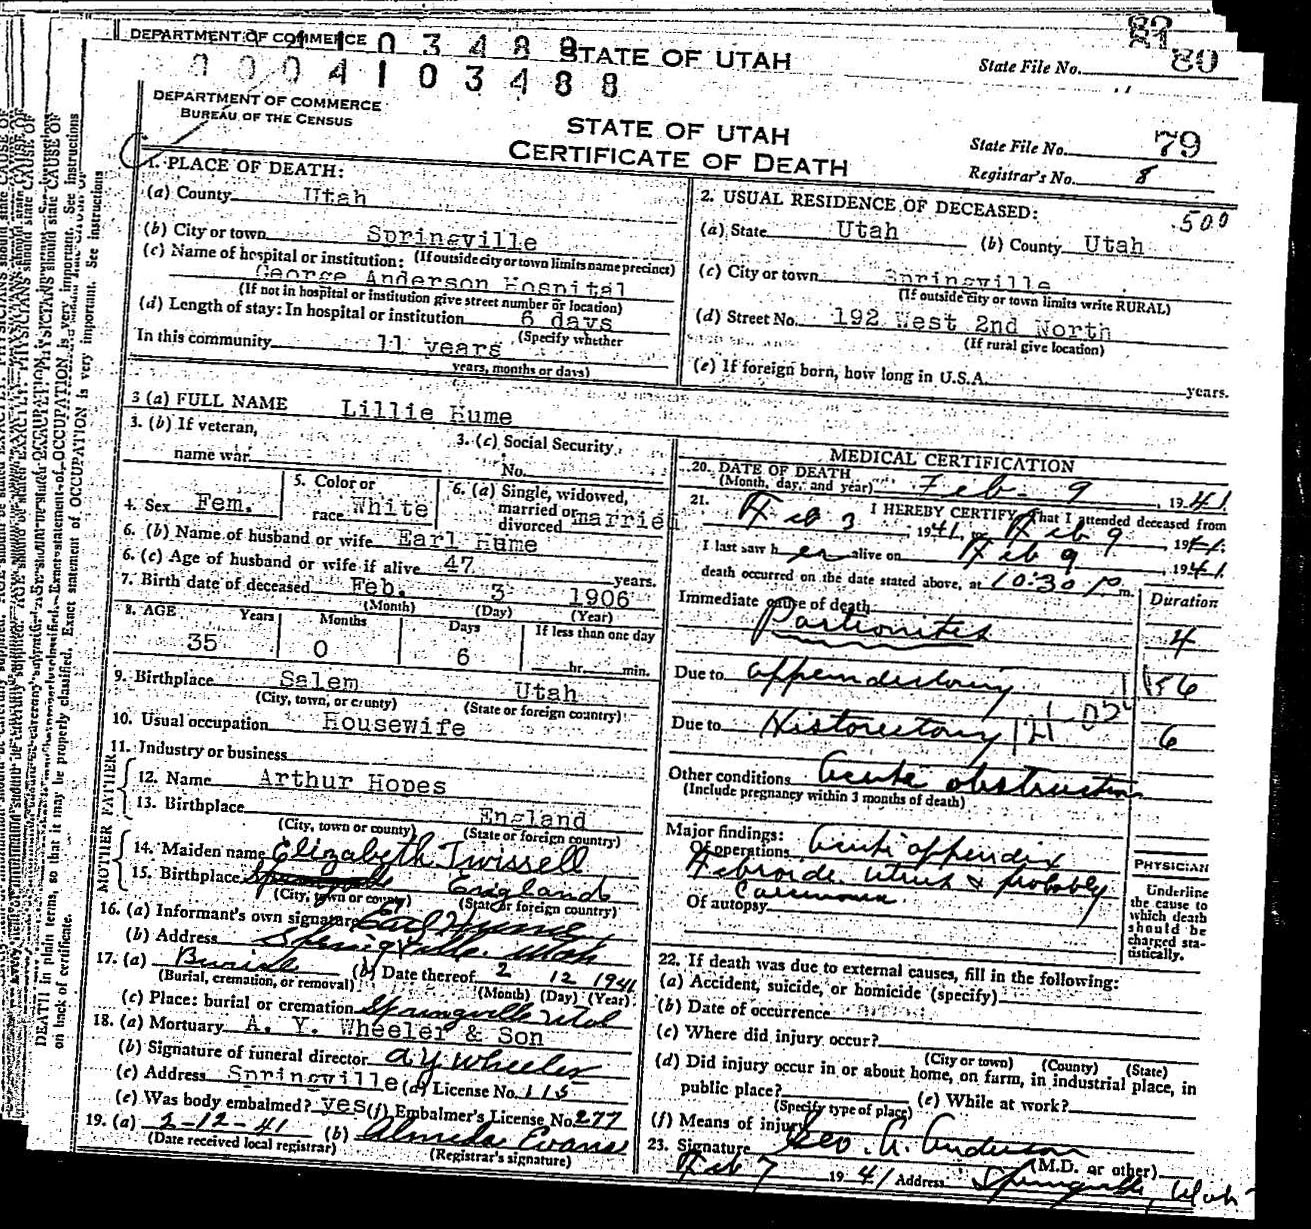 DEPARTMENT OF COMMERCE
STATE OF UTAH
State File No. 80
0004103488
DEPARTMENT OF COMMERCE
BUREAU OF THE CENSUS
STATE OF UTAH
CERTIFICATE OF DEATH
State File No. 79
Registrar's No. 8
1. PLACE OF DEATH:
(a) County Utah
(b) City or town Springville
(c) Name of hospital or institution: (If outside city or town limits name precinct)
George Anderson Hospital
(If not in hospital or institution give street number or location)
(d) Length of stay: In hospital or institution 6 days
(Specify whether
In this community 11 years
years, months or days)
2. USUAL RESIDENCE OF DECEASED: 500
(a) State Utah (b) County Utah
(c) City or town Springville
(If outside city or town limits write RURAL)
(d) Street No. 192 West 2nd North
(If rural give location)
(e) If foreign born, how long in U.S.A. years.
3 (a) FULL NAME Lillie Hume
3. (b) If veteran,
name war.
3. (c) Social Security
No.
4. Sex Fem.
5. Color or
race White
6. (a) Single, widowed,
married or
divorced married
6. (b) Name of husband or wife Earl Hume
6. (c) Age of husband or wife if alive 47 years.
7. Birth date of deceased Feb. 3 1906
(Month) (Day) (Year)
8. AGE Years Months Days If less than one day
35 0 6 hr. min.
9. Birthplace Salem Utah
(City, town, or county) (State or foreign country)
10. Usual occupation Housewife
11. Industry or business
FATHER
12. Name Arthur Hopes
13. Birthplace England
(City, town or county) (State or foreign country)
MOTHER
14. Maiden name Elizabeth Twissell
15. Birthplace England
(City, town or county) (State or foreign country)
16. (a) Informant's own signature Earl Hume
(b) Address Springville. Utah
17. (a) Burial (b) Date thereof 2 12 1941
(Burial, cremation, or removal) (Month) (Day) (Year)
(c) Place: burial or cremation Springville Utah
18. (a) Mortuary A. Y. Wheeler & Son
(b) Signature of funeral director A Y Wheeler
(c) Address Springville (d) License No. 115
(e) Was body embalmed? yes (f) Embalmer's License No. 277
19. (a) 2-12-41 (b) Almeda Evans
(Date received local registrar) (Registrar's signature)
MEDICAL CERTIFICATION
20. DATE OF DEATH
(Month, day, and year) Feb - 9, 1941
21. I HEREBY CERTIFY, That I attended deceased from
Feb 3, 1941, to Feb 9, 1941.
I last saw her alive on Feb 9, 1941
death occurred on the date stated above, at 10:30 P. m.
Immediate cause of death Duration
Partionites 4
Due to appendectomy 6
Due to Historectomy 6
Other conditions Acute obstruction
(Include pregnancy within 3 months of death)
Major findings:
Of operations Acute appendix
Fibroide utrus & probably
Of autopsy
PHYSICIAN
Underline
the cause to
which death
should be
charged sta-
tistically.
22. If death was due to external causes, fill in the following:
(a) Accident, suicide, or homicide (specify)
(b) Date of occurrence
(c) Where did injury occur?
(City or town) (County) (State)
(d) Did injury occur in or about home, on farm, in industrial place, in
public place? (e) While at work?
(Specify type of place)
(f) Means of injury
23. Signature Geo. A. Anderson
(M.D. or other)
Feb 7 1941 Address Springville, Utah